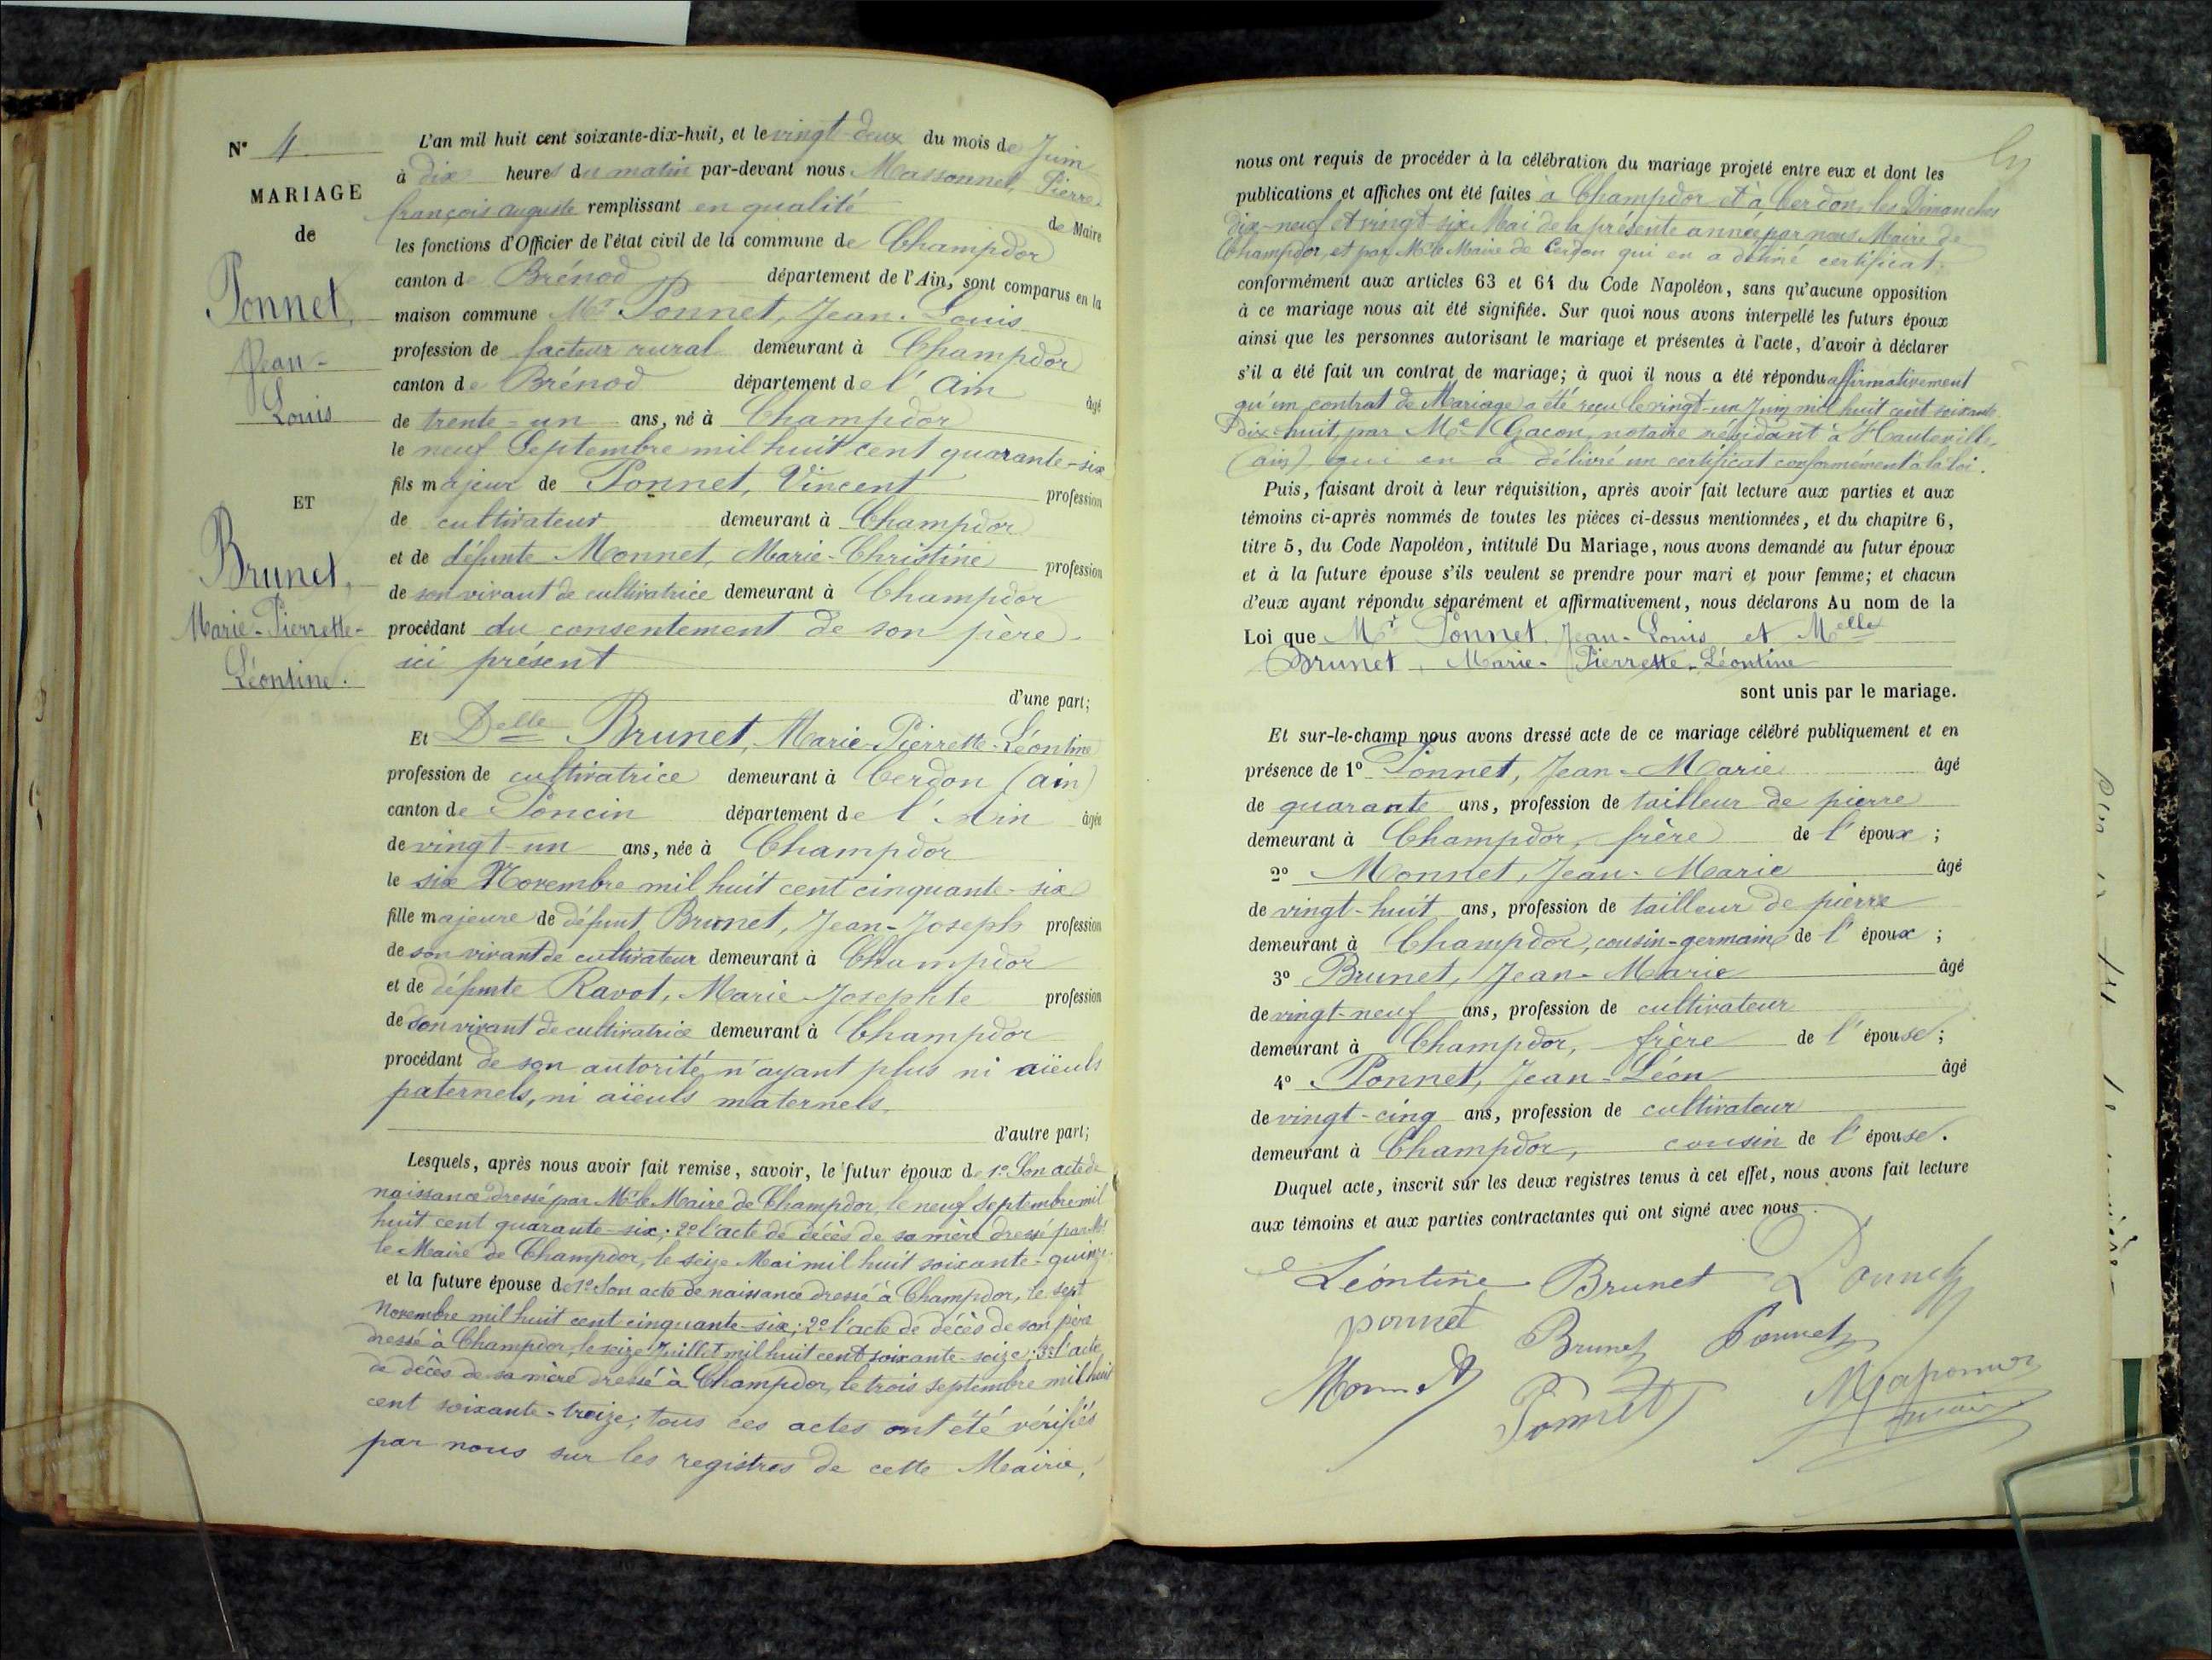 N° 4
MARIAGE
de
Ponnet,
Jean-
Louis
ET
Brunet,
Marie-Pierrette-
Léontine.
L'an mil huit cent soixante-dix-huit, et le vingt-deux du mois de Juin
à dix heures du matin par-devant nous Massonnet, Pierre
françois auguste remplissant en qualité de Maire
les fonctions d'Officier de l'état civil de la commune de Champdor
canton de Brénod département de l'Ain, sont comparus en la
maison commune Mr Ponnet, Jean-Louis
profession de facteur rural demeurant à Champdor
canton de Brénod département de l'Ain âgé
de trente-un ans, né à Champdor
le neuf Septembre mil huit cent quarante-six
fils majeur de Ponnet, Vincent profession
de cultivateur demeurant à Champdor
et de défunte Monnet, Marie-Christine profession
de son vivant de cultivatrice demeurant à Champdor
procédant du consentement de son père
ici présent
d'une part;
Et Delle Brunet, Marie-Pierrette-Léontine
profession de cultivatrice demeurant à Cerdon (ain)
canton de Poncin département de l'Ain âgée
de vingt-un ans, née à Champdor
le six Novembre mil huit cent cinquante-six
fille majeure de défunt Brunet, Jean-Joseph profession
de son vivant de cultivateur demeurant à Champdor
et de défunte Ravot, Marie Josephte profession
de son vivant de cultivatrice demeurant à Champdor
procédant de son autorité n'ayant plus ni aïeuls
paternels, ni aïeuls maternels.
d'autre part;
Lesquels, après nous avoir fait remise, savoir, le futur époux de 1° Son acte de
naissance dressé par Mr le Maire de Champdor, le neuf Septembre mil
huit cent quarante-six; 2° l'acte de décès de sa mère dressé par Mr
le Maire de Champdor, le seize Mai mil huit soixante-quinze
et la future épouse de 1° Son acte de naissance dressé à Champdor, le sept
Novembre mil huit cent cinquante-six; 2° l'acte de décès de son père
dressé à Champdor, le seize Juillet mil huit cent soixante-seize; 3° l'acte
de décès de sa mère dressé à Champdor, le trois septembre mil huit
cent soixante-treize; tous ces actes ont été vérifiés
par nous sur les registres de cette Mairie,
nous ont requis de procéder à la célébration du mariage projeté entre eux et dont les
publications et affiches ont été faites à Champdor et à Cerdon, les Dimanches
dix-neuf et vingt-six Mai de la présente année par nous Maire de
Champdor, et par Mr le Maire de Cerdon qui en a délivré certificat.
conformément aux articles 63 et 64 du Code Napoléon, sans qu'aucune opposition
à ce mariage nous ait été signifiée. Sur quoi nous avons interpellé les futurs époux
ainsi que les personnes autorisant le mariage et présentes à l'acte, d'avoir à déclarer
s'il a été fait un contrat de mariage; à quoi il nous a été répondu affirmativement
qu'un contrat de Mariage a été reçu le vingt-un Juin mil huit cent soixante
dix-huit, par Me Gacon, notaire résidant à Hauteville
(ain) qui en a délivré un certificat conformément à la loi.
Puis, faisant droit à leur réquisition, après avoir fait lecture aux parties et aux
témoins ci-après nommés de toutes les pièces ci-dessus mentionnées, et du chapitre 6,
titre 5, du Code Napoléon, intitulé Du Mariage, nous avons demandé au futur époux
et à la future épouse s'ils veulent se prendre pour mari et pour femme; et chacun
d'eux ayant répondu séparément et affirmativement, nous déclarons Au nom de la
Loi que Mr Ponnet, Jean-Louis et Melle
Brunet, Marie-Pierrette-Léontine
sont unis par le mariage.
Et sur-le-champ nous avons dressé acte de ce mariage célébré publiquement et en
présence de 1° Ponnet, Jean-Marie âgé
de quarante ans, profession de tailleur de pierre
demeurant à Champdor, frère de l'époux;
2° Monnet, Jean-Marie âgé
de vingt-huit ans, profession de tailleur de pierre
demeurant à Champdor, cousin-germain de l'époux;
3° Brunet, Jean-Marie âgé
de vingt-neuf ans, profession de cultivateur
demeurant à Champdor, frère de l'épouse;
4° Ponnet, Jean-Léon âgé
de vingt-cinq ans, profession de cultivateur
demeurant à Champdor, cousin de l'épouse.
Duquel acte, inscrit sur les deux registres tenus à cet effet, nous avons fait lecture
aux témoins et aux parties contractantes qui ont signé avec nous.
Léontine Brunet Ponnet
ponnet Brunet Ponnet
Monnet Ponnet
maire